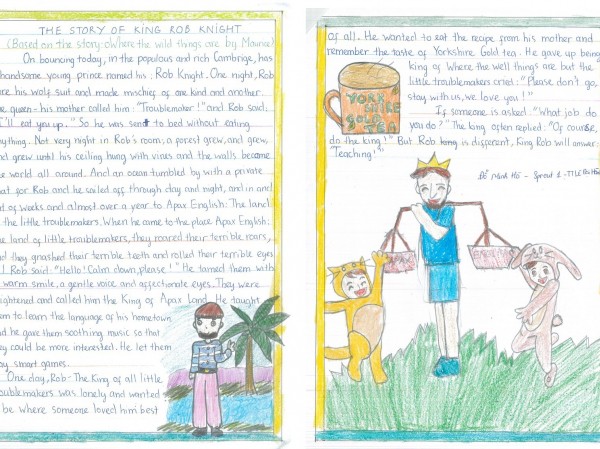 THE STORY OF KING ROB KNIGHT
(Based on the story: Where the wild things are by Maurice
On bouncing today, in the populous and rich Cambrige, has
handsome young prince named his: Rob Knight. One night, Rob
ore his wolf suit and made mischief of one kind and another
he queen - his mother called him: "Troublemaker!" and Rob said,
I'll eat you up." So he was sent to bed without eating
nything. Not very night in Rob's room; a forest grew, and grew,
and grew until his ceiling hung with vines and the walls became
he world all around. And an ocean tumbled by with a private
oat for Rob and he sailed off through day and night, and in and
t of weeks and almost over a year to Apax English: The land
the little troublemakers. When he came to the place Apax English:
he land of little troublemakers, they roared their terrible roars,
nd they gnashed their terrible teeth and rolled their terrible eyes
Rob said: "Hello! Calm down, please!" He tamed them with
warm smile, a gentle voice and affectionate eyes. They were
ightened and called him the King of Apax Land. He taught
em to learn the language of his hometown
nd he gave them soothing music so that
hey could be more interested. He let them
ay smart games.
One day, Rob - The King of all little
troublemakers was lonely and wanted
be where someone loved him best
of all. He wanted to eat the recipe from his mother and
remember the taste of Yorkshire Gold tea. He gave up being
king of Where the well things are but the
"little troublemakers cried: "Please don't go,
stay with us, we love you!"
If someone is asked: "What job do
you do?" The king often replied: "Of course,
do the king!" But Rob king is different, King Rob will answer:
"Teaching!"
YORK
SHIRE
GOLD
TEA
Sprout 2 - TIL